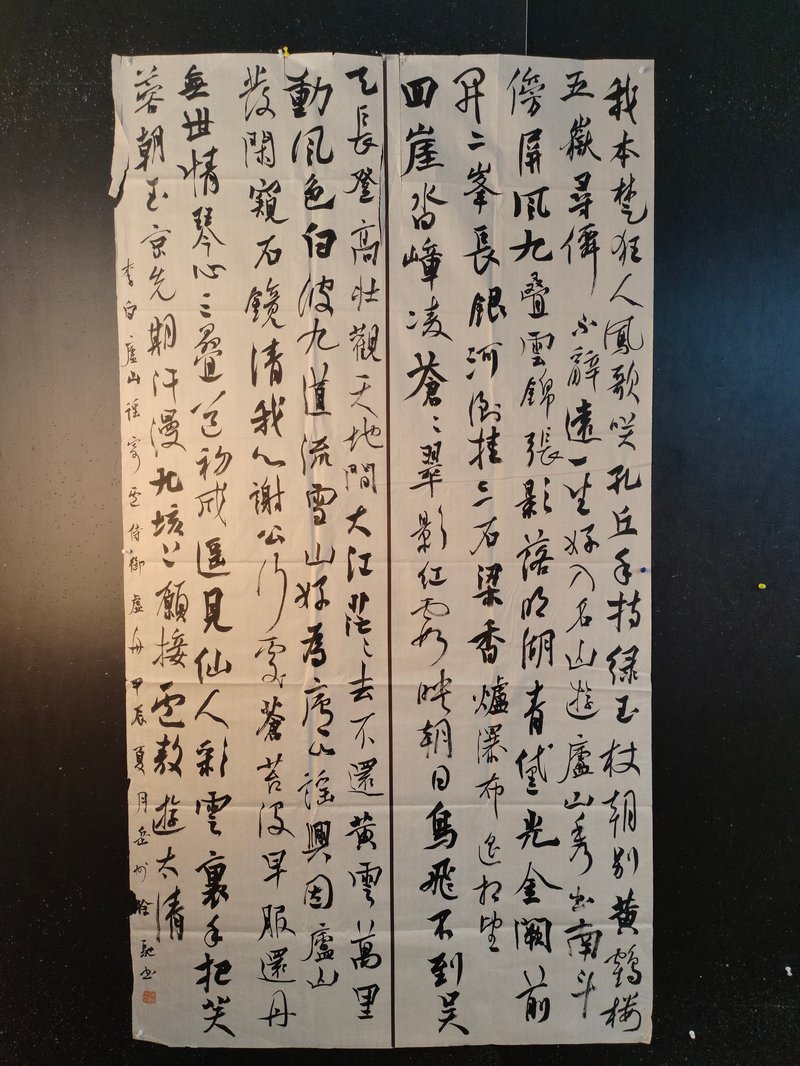 我本楚狂人鳳歌笑孔丘手持绿玉杖朝别黄鶴楼
五嶽尋僊不辭遠一生好入名山遊廬山秀出南斗
傍屏風九疊雲錦張影落明湖青黛光金闕前
開二峯長銀河倒挂三石梁香爐瀑布遥相望
回崖沓嶂凌蒼〻翠影红霞映朝日鳥飛不到吴
天長登高壮觀天地間大江茫〻去不還黄雲萬里
動風色白波九道流雪山好為廬山謡興因廬山
發閑窺石鏡清我心謝公行處蒼苔没早服還丹
無世情琴心三疊道初成遥見仙人彩雲裏手把芙
蓉朝玉京先期汗漫九垓上願接盧敖遊太清
李白廬山謡寄盧侍御虚舟甲辰夏月岳州